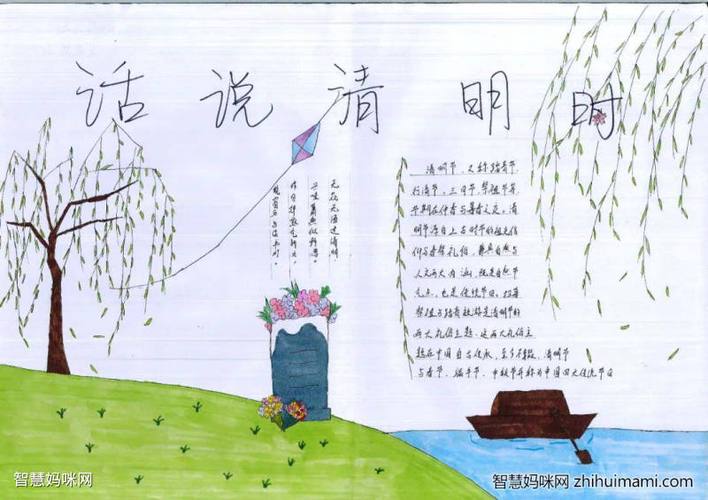 话说清明时
无花无酒过清明
兴味萧然似野僧。
昨日邻家乞新火
晓窗分与读书灯。
清明节，又称踏青节、
行清节、三月节、祭祖节等，
节期在仲春与暮春之交。清
明节源自上古时代的祖先信
仰与春祭礼俗，兼具自然与
人文两大内涵，既是自然节
气点，也是传统节日。扫墓
祭祖与踏青郊游是清明节的
两大礼俗主题，这两大礼俗主
题在中国自古传承，至今不辍。清明节
与春节、端午节、中秋节并称为中国四大传统节日
智慧妈咪网
智慧妈咪网 zhihuimami.com